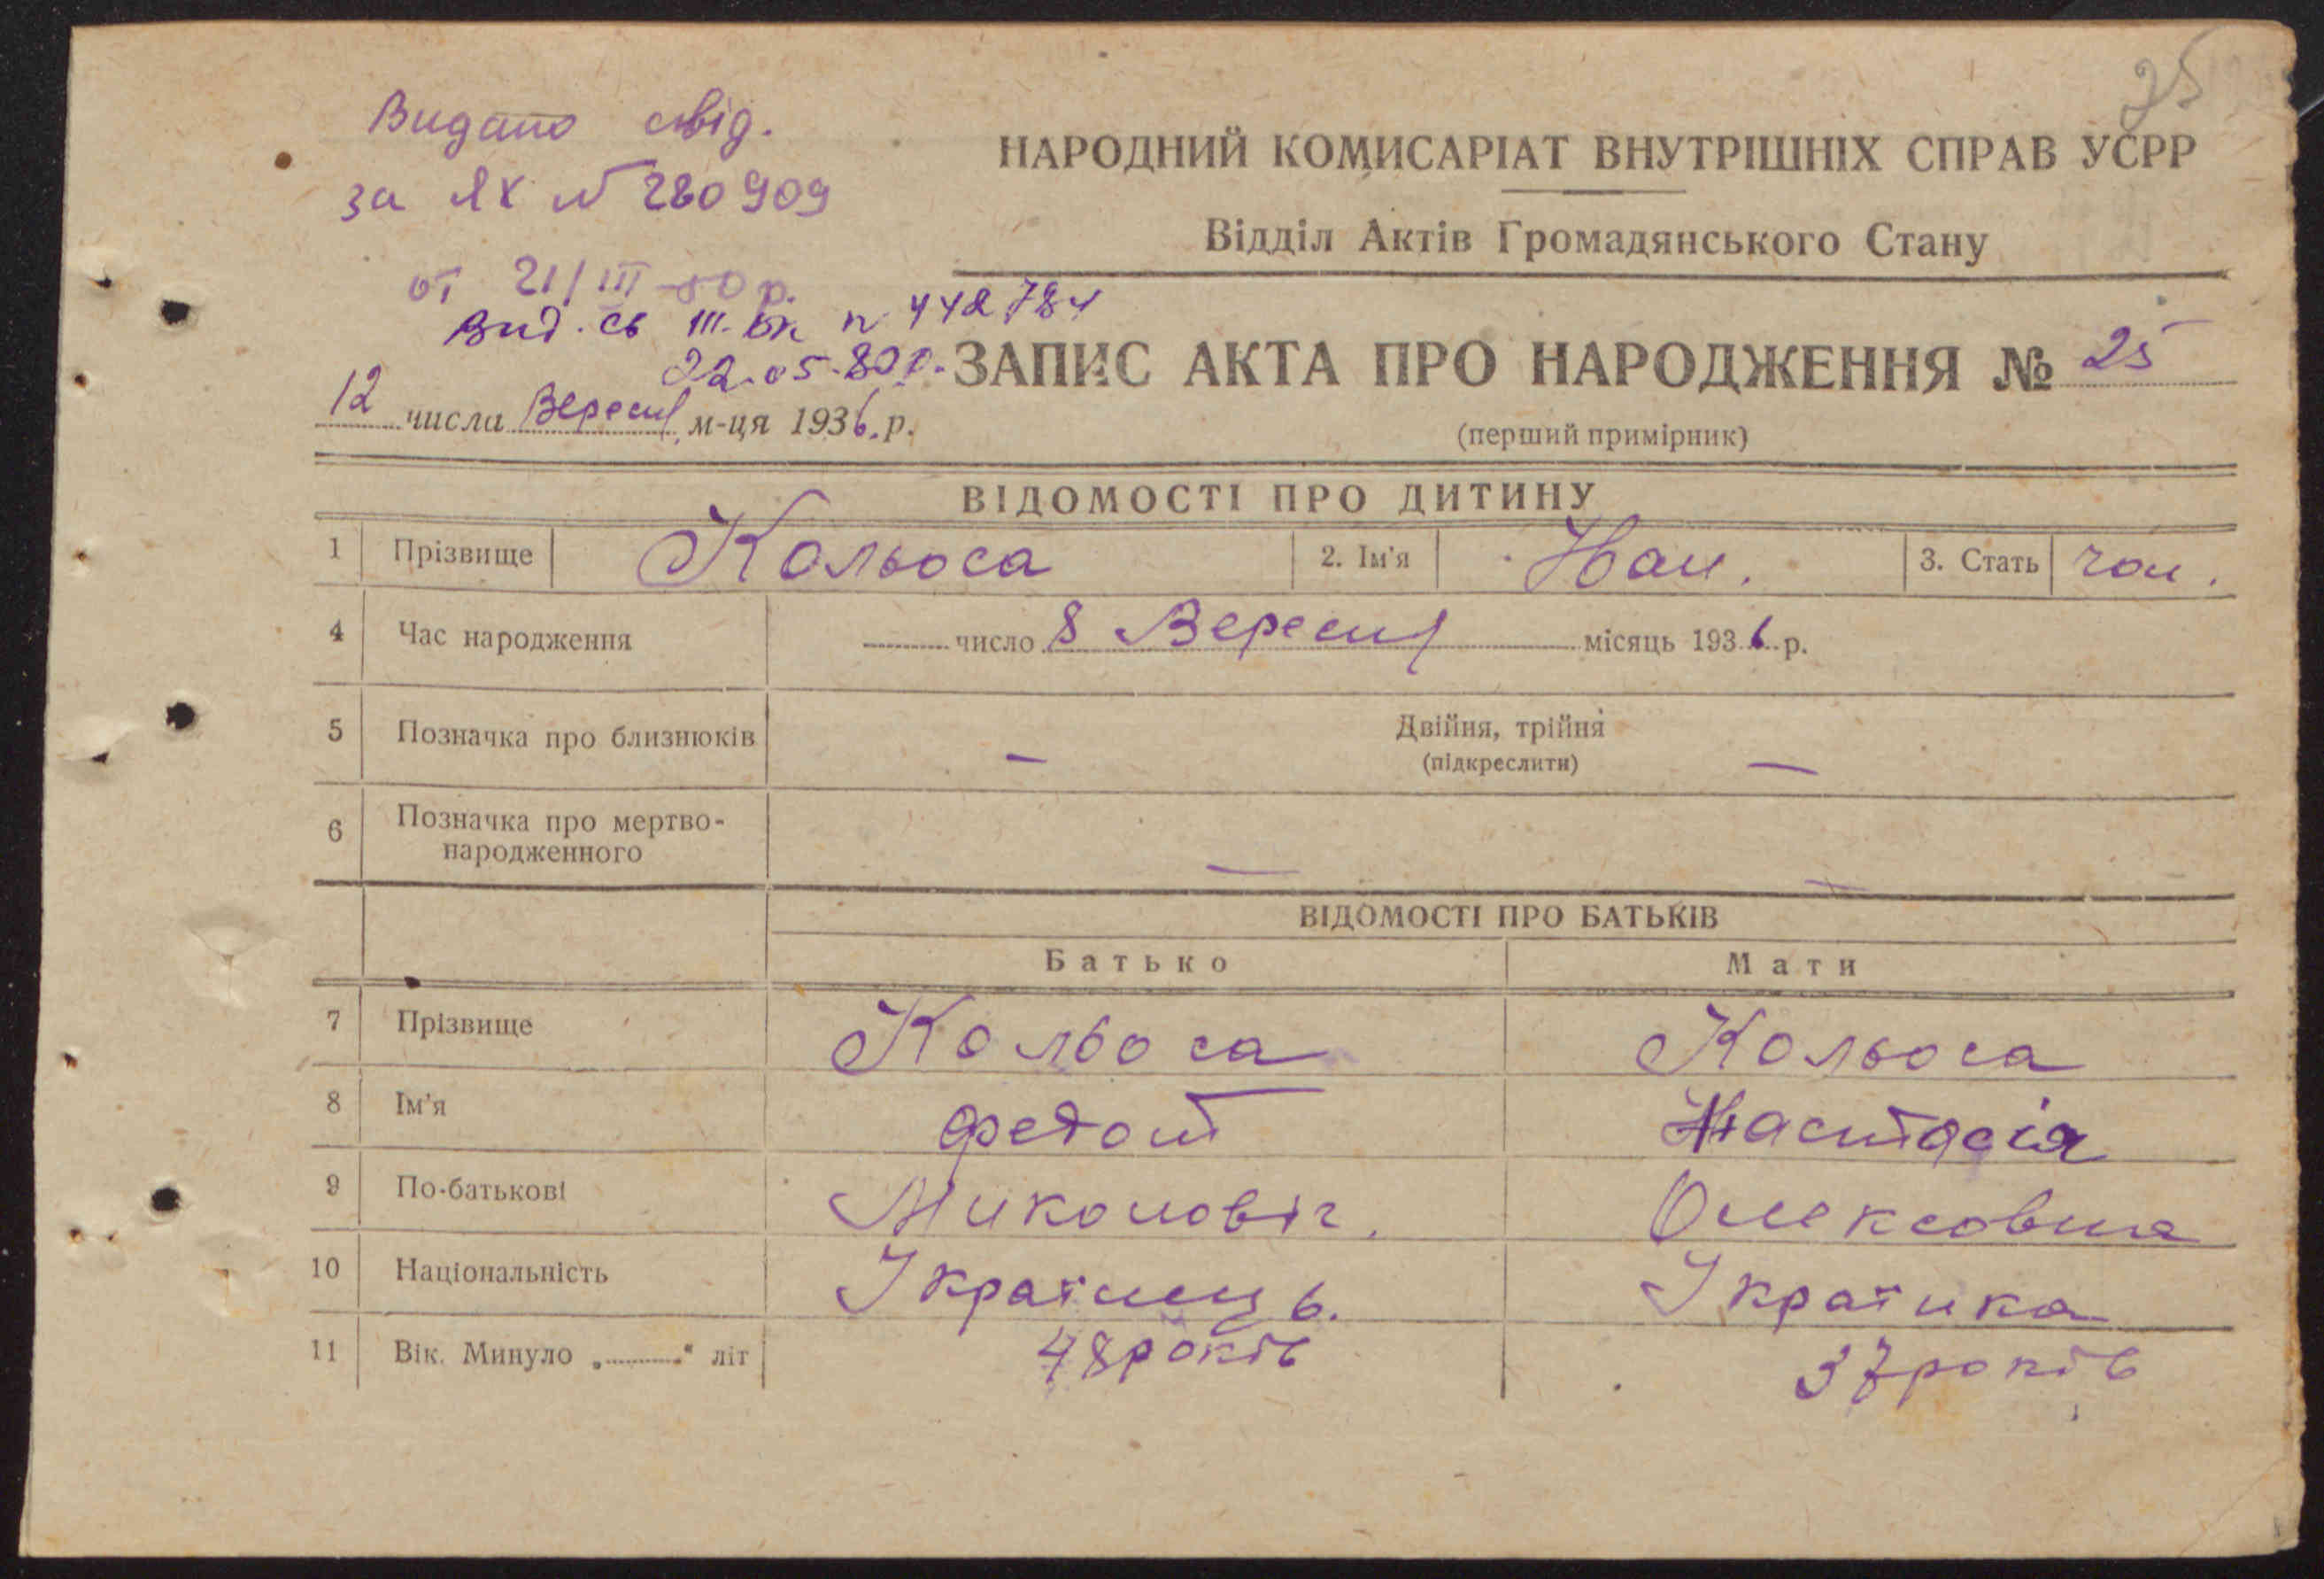 25
Видано свід.
за ЯХ № 280909
от 21/III-50 р.
Вид. св III-БК n 442784
22.05.80р.
НАРОДНИЙ КОМИСАРІАТ ВНУТРІШНІХ СПРАВ УСРР
Відділ Актів Громадянського Стану
ЗАПИС АКТА ПРО НАРОДЖЕННЯ № 25
12 числа Вересня м-ця 1936. р.
(перший примірник)
ВІДОМОСТІ ПРО ДИТИНУ
1 Прізвище Кольоса 2. Ім'я Іван. 3. Стать чол.
4 Час народження число 8 Вересня місяць 1936 р.
5 Позначка про близнюків — Двійня, трійня —
(підкреслити)
6 Позначка про мертво-
народженного — —
ВІДОМОСТІ ПРО БАТЬКІВ
Батько Мати
7 Прізвище Кольоса Кольоса
8 Ім'я Федот Настасія
9 По-батькові Миколовіч. Олексовна
10 Національність Українець. Українка
11 Вік. Минуло „ " літ 48 років 37 років